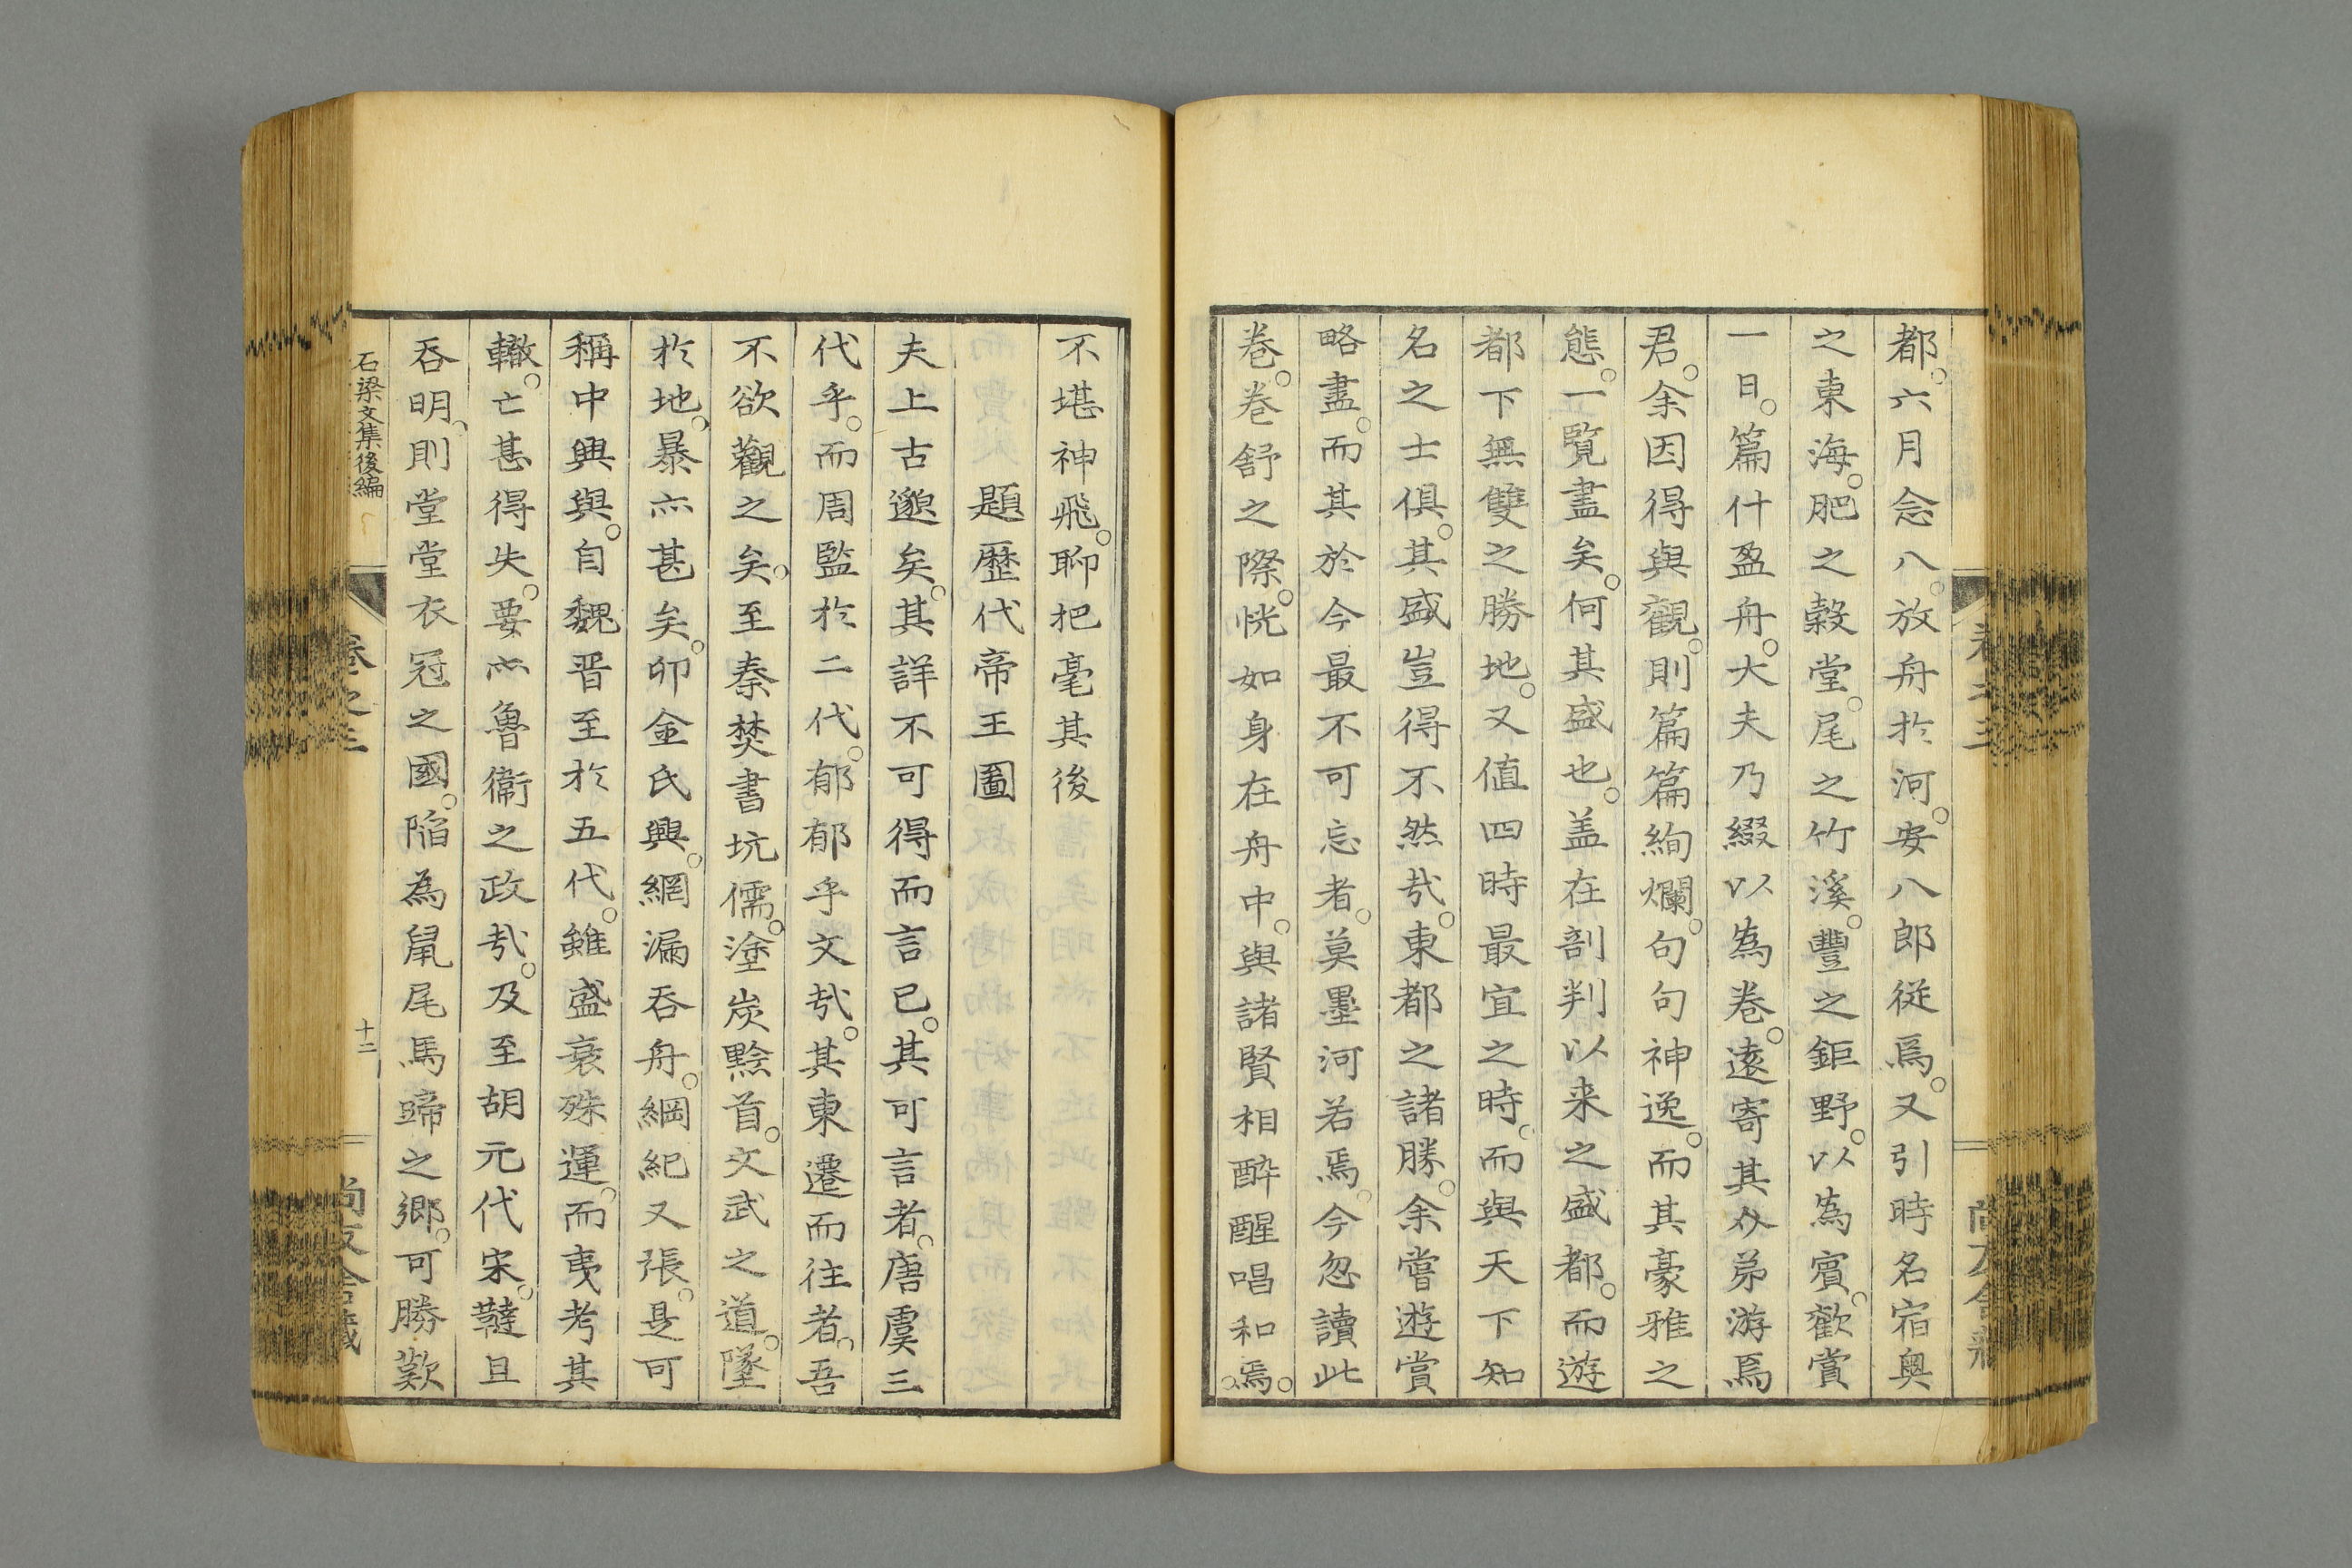 都。六月念八。放舟於河。安八郎從焉。又引時名宿奥
之東海。肥之穀堂。尾之竹溪。豐之鉅野。以為賓。歡賞
一日。篇什盈舟。大夫乃綴以為卷。遠寄其介弟游焉
君。余因得與觀。則篇篇絢爛。句句神逸。而其豪雅之
態。一覧盡矣。何其盛也。盖在剖判以来之盛都。而遊
都下無雙之勝地。又值四時最宜之時。而與天下知
名之士俱。其盛豈得不然哉。東都之諸勝。余嘗遊賞
略盡。而其於今最不可忘者。莫墨河若焉。今忽讀此
卷。卷舒之際。恍如身在舟中。與諸賢相酔醒唱和焉。
不堪神飛。聊把毫其後
題歷代帝王圖
夫上古邈矣。其詳不可得而言已。其可言者。唐虞三
代乎。而周監於二代。郁郁乎文哉。其東遷而往者。吾
不欲觀之矣。至秦焚書坑儒。塗炭黔首。文武之道。墜
於地。暴亦甚矣。卯金氏興。網漏吞舟。綱紀又張。是可
稱中興與。自魏晋至於五代。雖盛衰殊運。而夷考其
轍。亡甚得失。要亦魯衞之政哉。及至胡元代宋。韃且
吞明。則堂堂衣冠之國。陷為鼠尾馬蹄之鄉。可勝歎
石梁文集後編
卷之三
十二
尚友舍藏